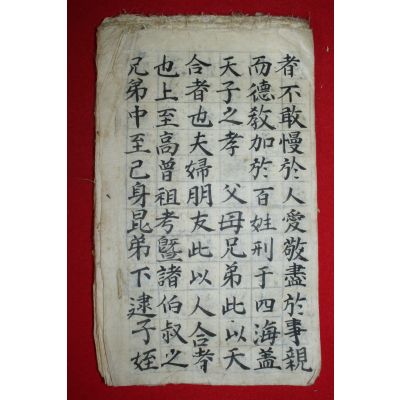 者不敢慢於人愛敬盡於事親
而德敎加於百姓刑于四海盖
天子之孝　父母兄弟此以天
合者也夫婦朋友此以人合者
也上至高曾祖考暨諸伯叔之
兄弟中至己身昆弟下逮子姪